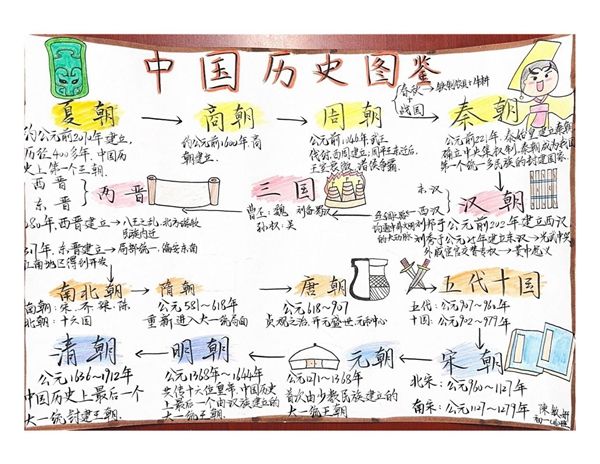 中国历史图鉴
夏朝
约公元前2070年建立,
历经400多年,中国历
史上第一个王朝。
商朝
约公元前1600年商
朝建立.
周朝
公元前1046年武王
春秋→铁制农具+牛耕
+
战国
秦朝
公元前221年,秦始皇建立秦朝
确立中央集权制,秦朝成为我国
第一个统一多民族的封建国家.
汉朝
东汉
西汉
刘邦于公元前202年建立西汉
刘秀于公元25年建立东汉→光武中兴
外戚宦官交替专权→黄巾起义
三国
曹丕:魏 刘备:蜀汉
孙权:吴
两晋
西晋
东晋
西晋建立→八王之乱,北方游牧
民族内迁
317年,东晋建立→局部统一,偏安东南
江南地区得到开发
南北朝
南朝:宋、齐、梁、陈
北朝:十六国
隋朝
公元581~618年
重新进入大一统局面
唐朝
公元618~907
贞观之治,开元盛世
五代十国
五代:公元907~960年
十国:公元902~979年
宋朝
北宋:公元960~1127年
南宋:公元1127~1279年
元朝
公元1271~1368年
首次由少数民族建立的
大一统王朝
明朝
公元1368年~1644年
共传十六位皇帝,中国历史
上最后一个由汉族建立的
大一统王朝.
清朝
公元1636~1912年
中国历史上最后一个
大一统封建王朝.